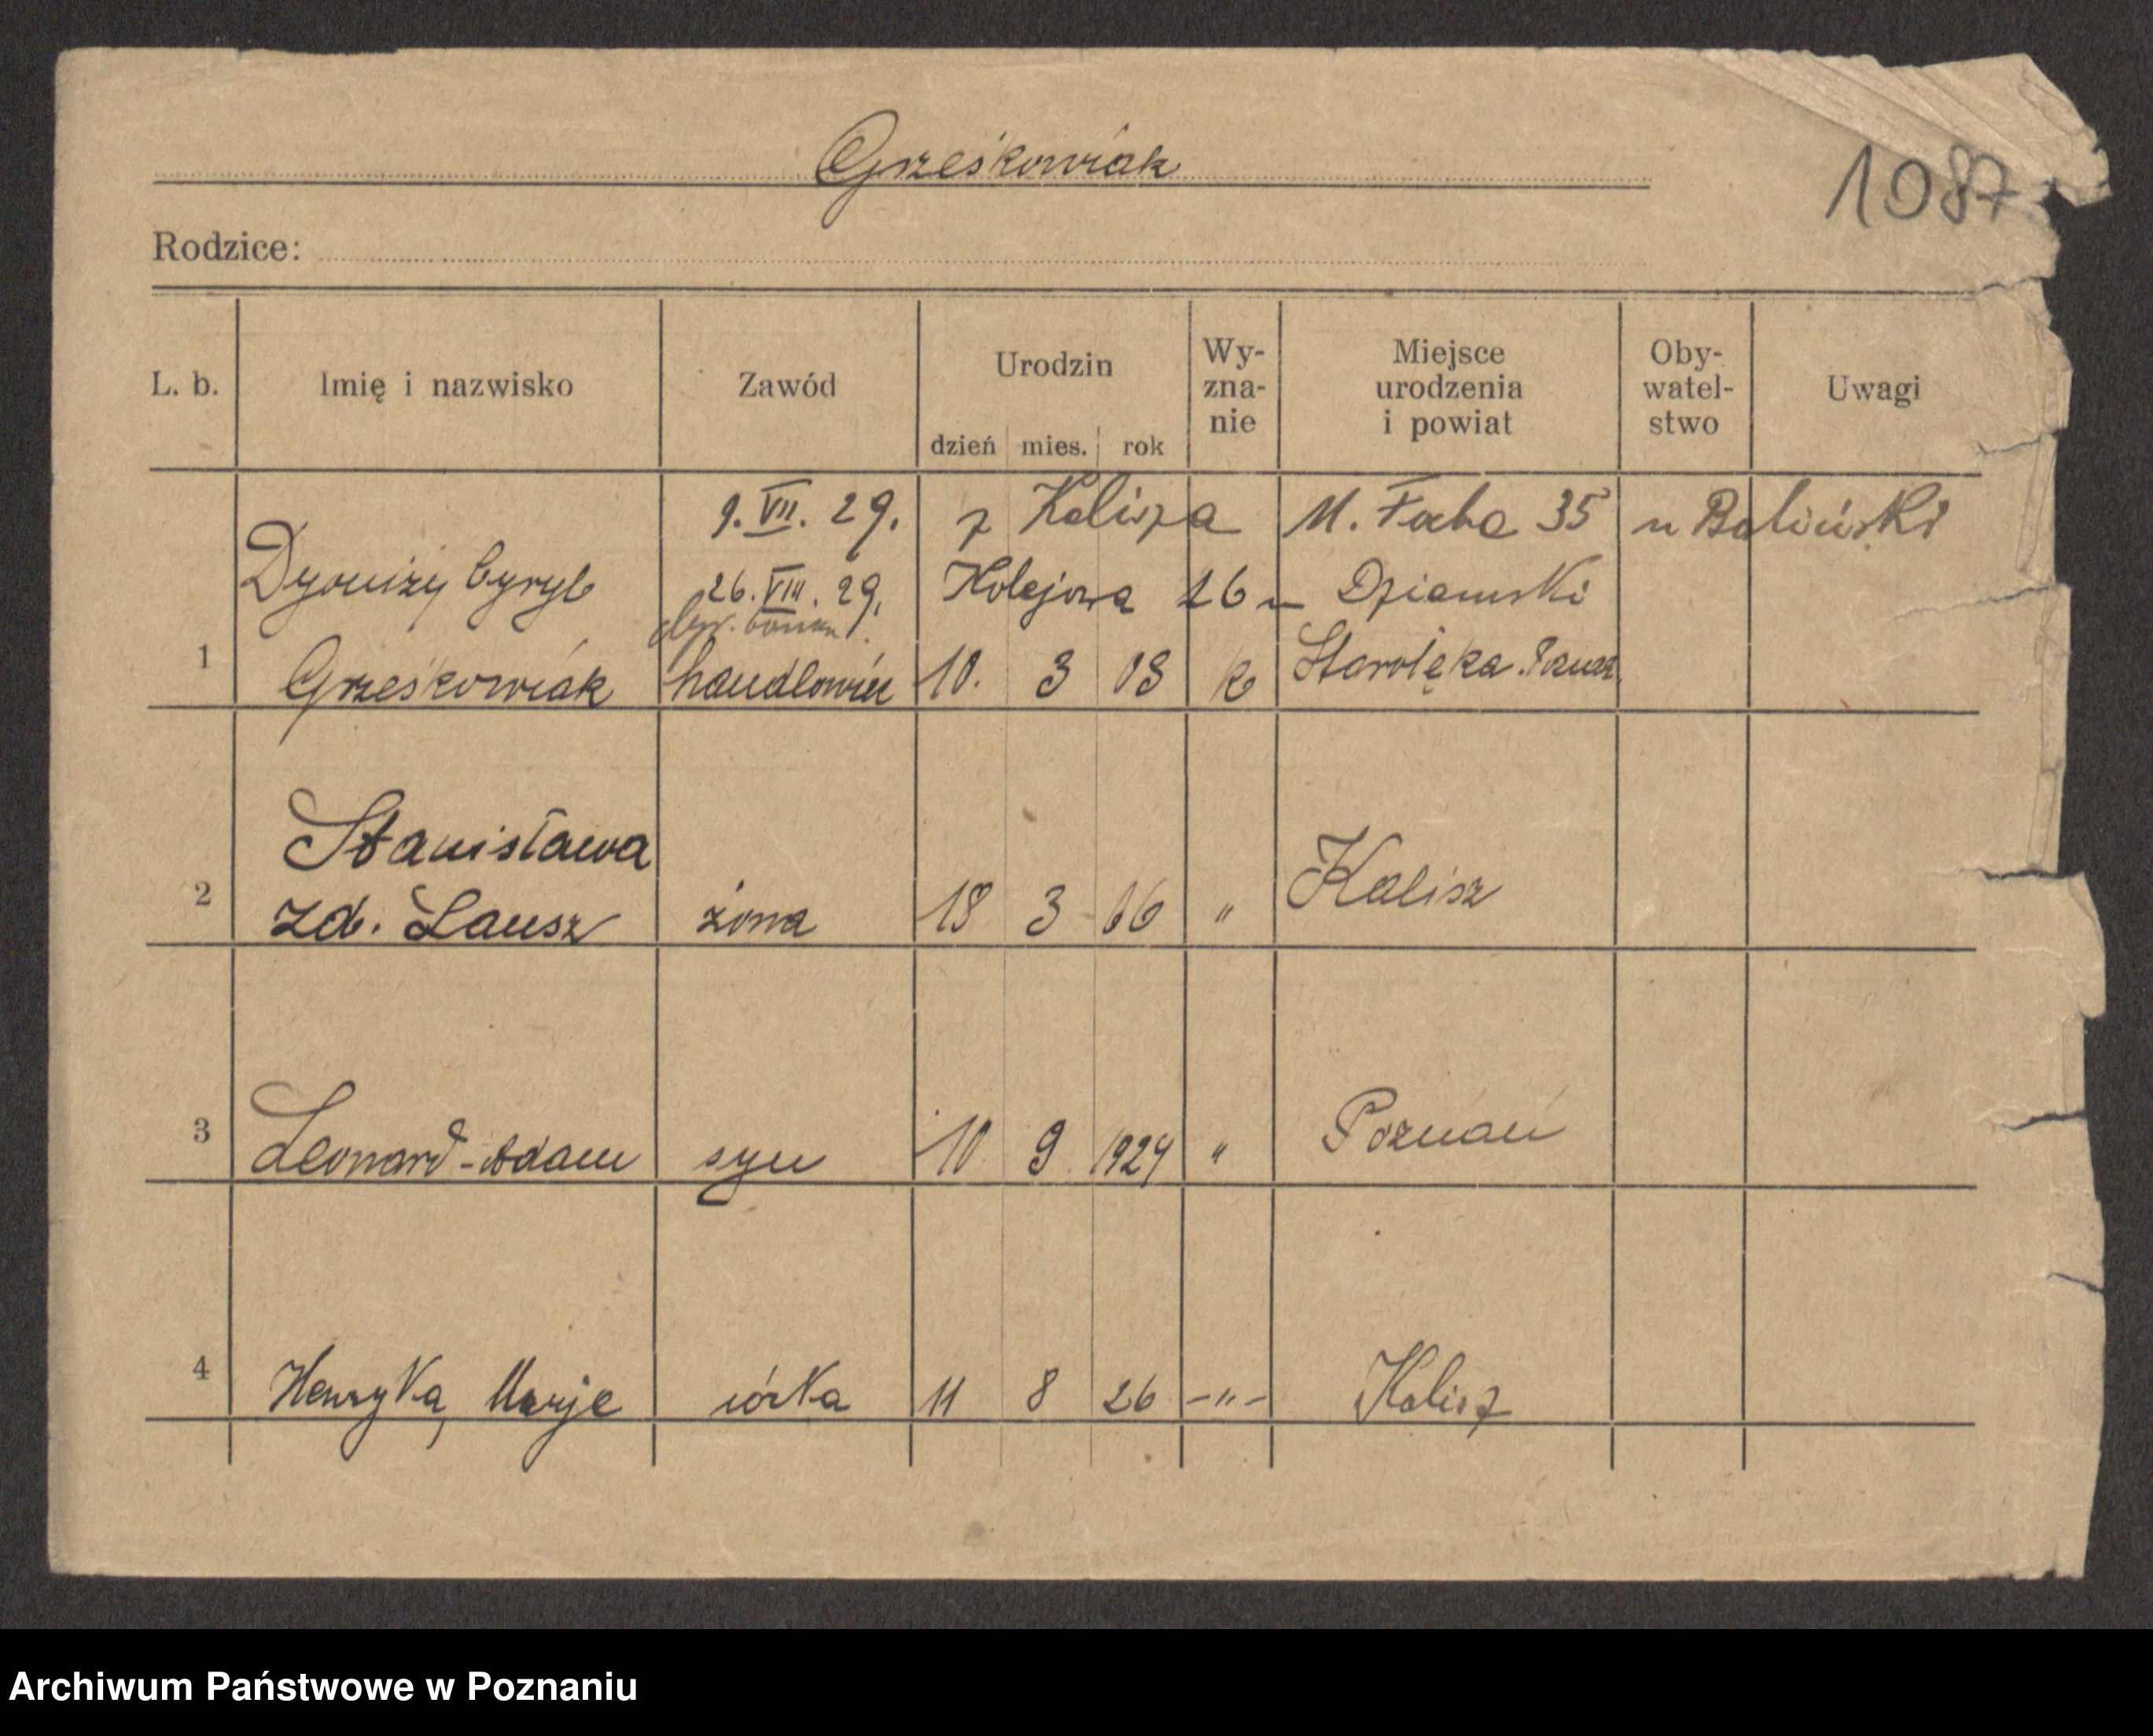 Grześkowiak
1087
Rodzice:
L. b. Imię i nazwisko Zawód Urodzin dzień mies. rok Wy- zna- nie Miejsce urodzenia i powiat Oby- watel- stwo Uwagi
9. VII. 29. z Kalisza M. Focha 35 u Baliński
Dyonizy Cyryl 26. VIII. 29. Kolejowa 26 u Dziamski
1 Grześkowiak handlowiec 10. 3 08 k Starołęka. Pozn.
Stanisława
2 zd. Lausz żona 18 3 06 " Kalisz
3 Leonard-Adam syn 10 9 1929 " Poznań
4 Henryka, Marje córka 11 8 26 -"- Kalisz
Archiwum Państwowe w Poznaniu